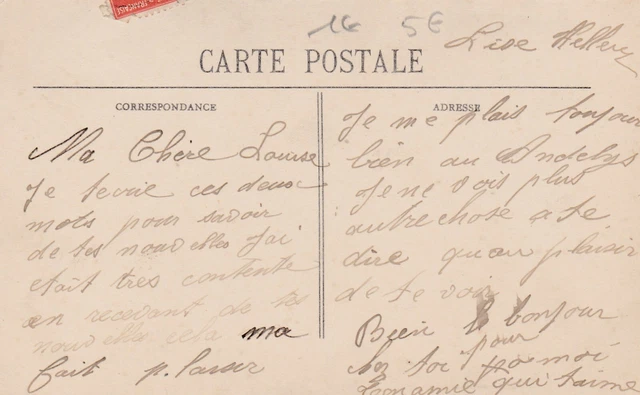 1€ 5€
Lise Hellery
CARTE POSTALE
CORRESPONDANCE
Ma Chère Louise
Je tecrie ces deux
mots pour savoir
de tes nouvelles J'ai
etait tres contente
en recevant de tes
nouvelles cela ma
fait
ADRESSE
Je me plais toujour
bien au Andelys
Je ne vois plus
autre chose a te
dire qu au plaisir
de te voir
Bien bonjour
toi pour moi
Ton amie qui taime